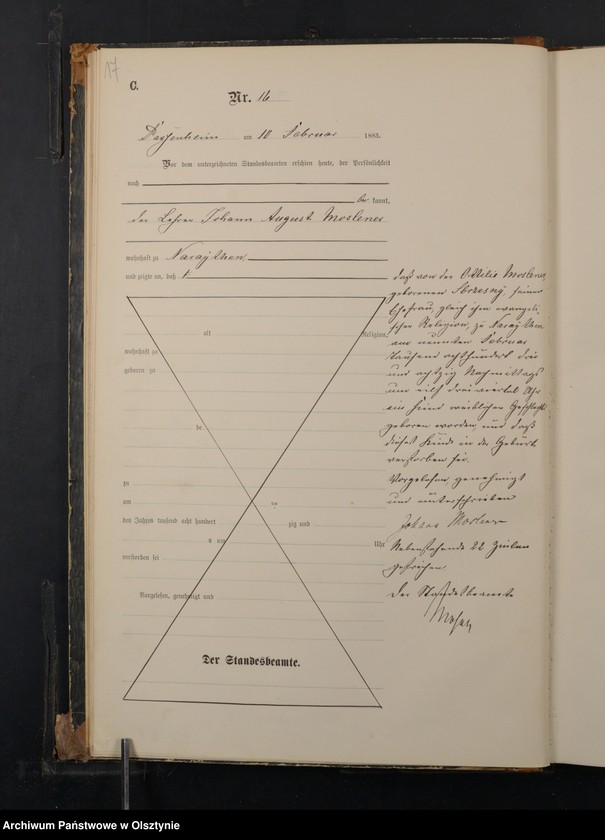 17
C.
Nr. 16
Passenheim am 10 Februar 1883.
Vor dem unterzeichneten Standesbeamten erschien heute, der Persönlichkeit
nach
be kannt,
der Lehrer Johann August Moslener
wohnhaft zu Narajthen
und zeigte an, daß
alt Religion,
wohnhaft zu
geboren zu
de
zu
am ten
des Jahres tausend acht hundert zig und
s um Uhr
verstorben sei
Vorgelesen, genehmigt und
Der Standesbeamte.
daß von der Ottilie Moslener
geborenen seiner
Ehefrau, gleich ihm evangeli-
scher Religion, zu Narajthen
am neunten Februar
tausend achthundert drei
und achtzig Nachmittags
um eilf dreiviertel Uhr
ein Kind weiblichen Geschlechts
geboren worden, und daß
dieses Kind in der Geburt
verstorben sei.
Vorgelesen, genehmigt
und unterschrieben
Johann Moslener
Nebenstehende 22 Zeilen
gestrichen.
Der Standesbeamte
Archiwum Państwowe w Olsztynie